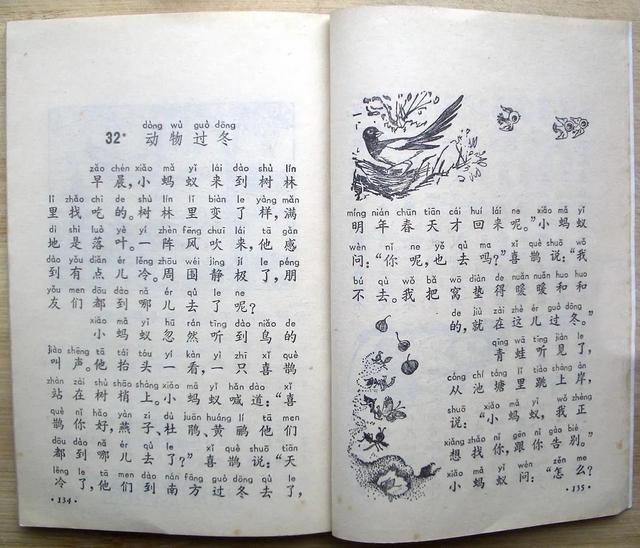 dòng wù guò dōng
32* 动物过冬
zǎo chén xiǎo mǎ yǐ lái dào shù lín
早晨,小蚂蚁来到树林
lǐ zhǎo chī de shù lín lǐ biàn le yàng mǎn
里找吃的。树林里变了样,满
dì shì luò yè yí zhèn fēng chuī lái tā gǎn
地是落叶。一阵风吹来,他感
dào yǒu diǎn ér lěng zhōu wéi jìng jí le péng
到有点儿冷。周围静极了,朋
yǒu men dōu dào nǎ ér qù le ne
友们都到哪儿去了呢?
xiǎo mǎ yǐ hū rán tīng dào niǎo de
小蚂蚁忽然听到鸟的
jiào shēng tā tái tóu yí kàn yì zhī xǐ què
叫声。他抬头一看,一只喜鹊
zhàn zài shù shāo shàng xiǎo mǎ yǐ hǎn dào xǐ
站在树梢上。小蚂蚁喊道:“喜
què nǐ hǎo yàn zi dù juān huáng lí tā men
鹊你好,燕子、杜鹃、黄鹂他们
dōu dào nǎ ér qù le xǐ què shuō tiān
都到哪儿去了?”喜鹊说:“天
lěng le tā men dào nán fāng guò dōng qù le
冷了,他们到南方过冬去了,
·134·
míng nián chūn tiān cái huí lái ne xiǎo mǎ yǐ
明年春天才回来呢。”小蚂蚁
wèn nǐ ne yě qù ma xǐ què shuō wǒ
问:“你呢,也去吗?”喜鹊说:“我
bú qù wǒ bǎ wō diàn de nuǎn nuǎn huo huo
不去。我把窝垫得暖暖和和
de jiù zài zhè ér guò dōng
的,就在这儿过冬。”
qīng wā tīng jiàn le
青蛙听见了,
cóng chí táng lǐ tiào shàng àn
从池塘里跳上岸,
shuō xiǎo mǎ yǐ wǒ zhèng
说:“小蚂蚁,我正
xiǎng zhǎo nǐ gēn nǐ gào bié
想找你,跟你告别。”
xiǎo mǎ yǐ wèn zěn me
小蚂蚁问:“怎么?
·135·